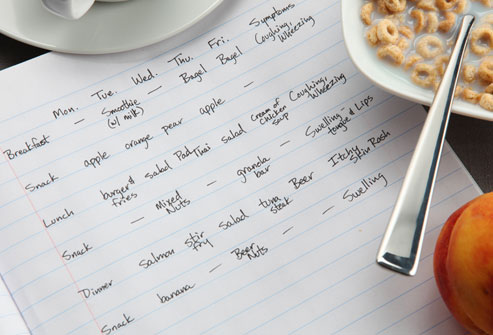 Mon. Tue. Wed. Thu. Fri. Symptoms
Breakfast — Smoothie — Bagel Bagel Coughing,
(w/ milk) Wheezing
Snack apple orange pear apple —
Lunch burger & salad Pad Thai salad Cream of Coughing,
fries chicken Wheezing
soup
Snack — Mixed — granola — Swelling -
Nuts bar tongue & Lips
Dinner Salmon stir salad tuna Beer Itchy
fry steak Skin Rash
Snack banana — Beer — — Swelling
Nuts